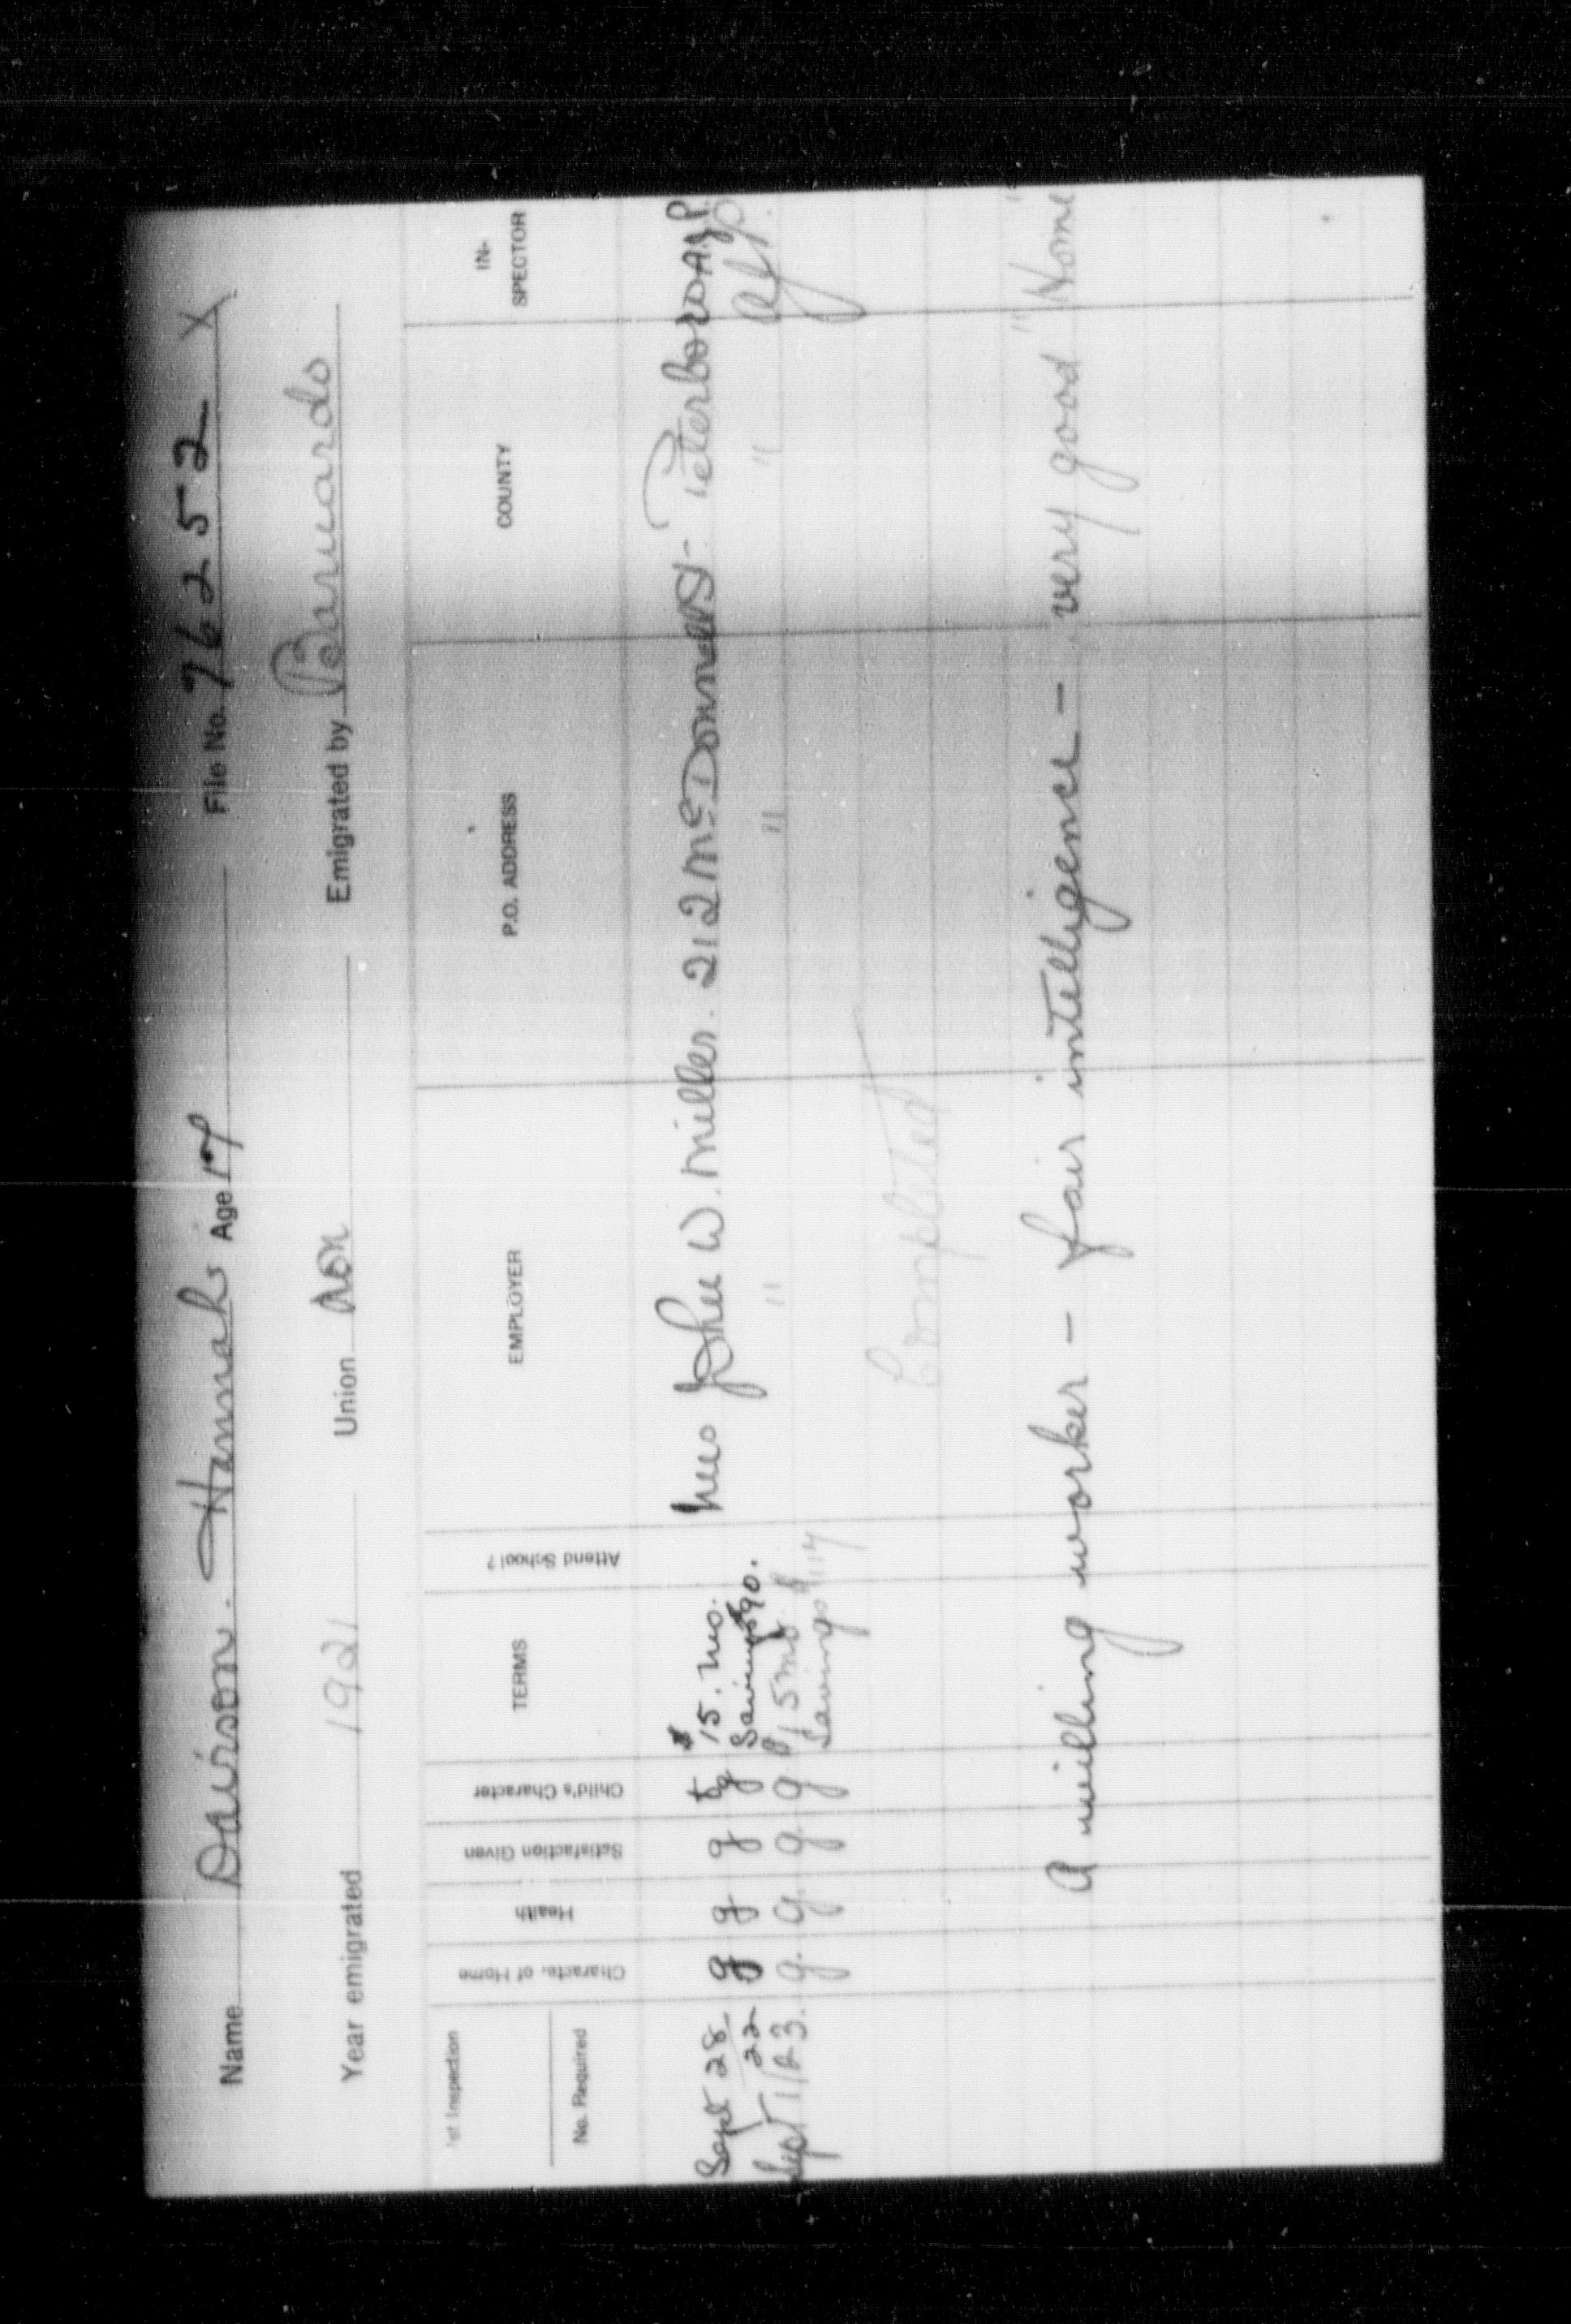 Name Davison. Hannah Age 17 File No. 76252 X
Year emigrated 1921 Union non Emigrated by Barnardo
1st Inspection
No. Required
Character of Home Health Satisfaction Given Child's Character TERMS Attend School? EMPLOYER P.O. ADDRESS COUNTY IN-SPECTOR
Sept 28 22 g g g $15. mo. Mrs John W. Miller. 212 McDonnel St. Peterboro A.J.P.
Savings $90.
Sept 1/23. g. g. g. g $15 mo " " " AJP.
Savings
Completed
A willing worker - fair intelligence - very good "Home"